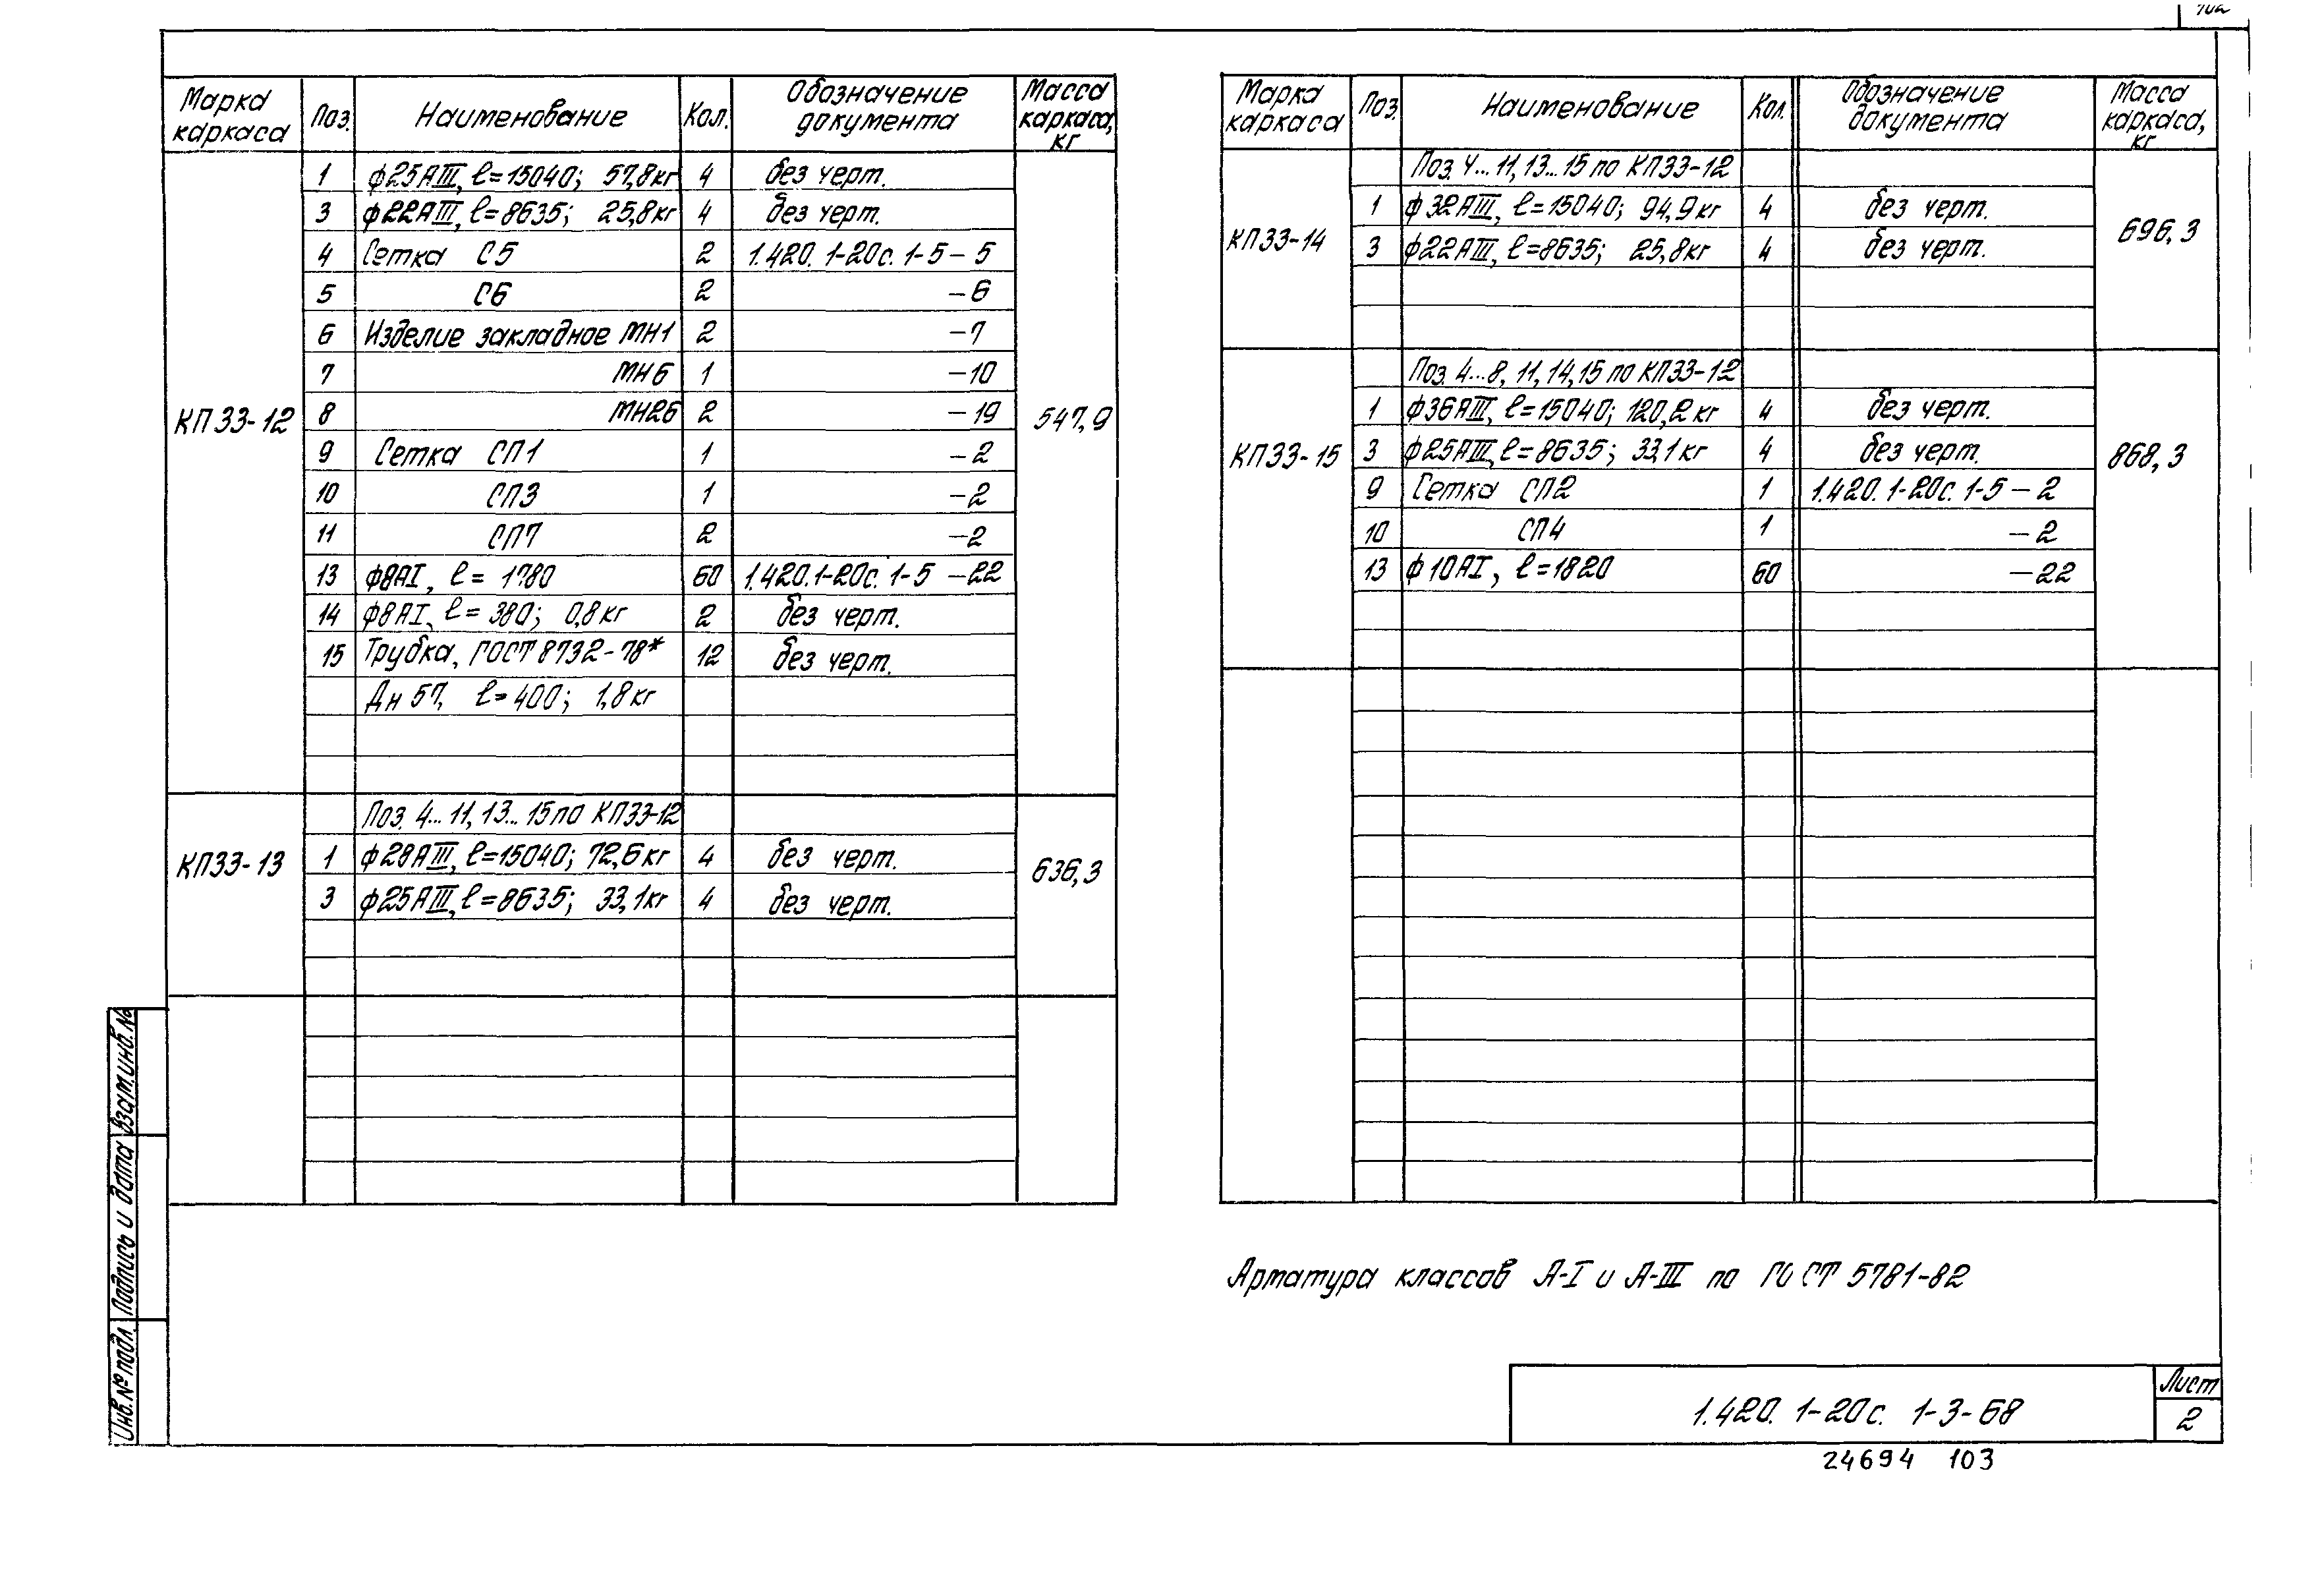 Марка каркаса Поз. Наименование Кол. Обозначение документа Масса каркаса, кг
КП33-12 547,9
1 ф25АIII, ℓ=15040; 57,8кг 4 без черт.
3 ф22АIII, ℓ=8635; 25,8кг 4 без черт.
4 Сетка С5 2 1.420.1-20с.1-5-5
5 С6 2 -6
6 Изделие закладное МН1 2 -7
7 МН6 1 -10
8 МН26 2 -19
9 Сетка СП1 1 -2
10 СП3 1 -2
11 СП7 2 -2
13 ф8АI, ℓ= 1780 60 1.420.1-20с.1-5 -22
14 ф8АI, ℓ= 380; 0,8кг 2 без черт.
15 Трубка, ГОСТ 8732-78* 12 без черт.
Дн 57, ℓ=400; 1,8кг
КП33-13 636,3
Поз. 4...11, 13...15 по КП33-12
1 ф28АIII, ℓ=15040; 72,6кг 4 без черт.
3 ф25АIII, ℓ=8635; 33,1кг 4 без черт.
Марка каркаса Поз. Наименование Кол. Обозначение документа Масса каркаса, кг
КП33-14 696,3
Поз. 4...11, 13...15 по КП33-12
1 ф32АIII, ℓ=15040; 94,9кг 4 без черт.
3 ф22АIII, ℓ=8635; 25,8кг 4 без черт.
КП33-15 868,3
Поз. 4...8, 11, 14, 15 по КП33-12
1 ф36АIII, ℓ=15040; 120,2кг 4 без черт.
3 ф25АIII, ℓ=8635; 33,1кг 4 без черт.
9 Сетка СП2 1 1.420.1-20с.1-5-2
10 СП4 1 -2
13 ф10АI, ℓ=1820 60 -22
Арматура классов А-I и А-III по ГОСТ 5781-82
Инв.№ подл. Подпись и дата Взам.инв.№
1.420.1-20с. 1-3-68
Лист
2
24694 103